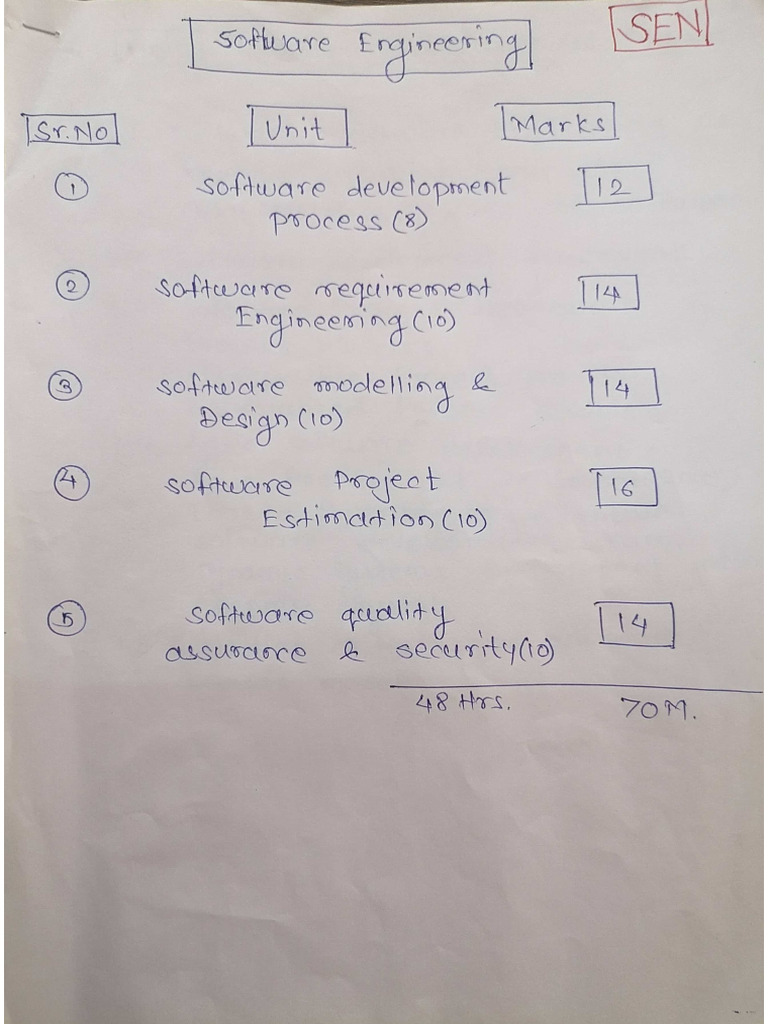 Software Engineering
SEN
Sr.No Unit Marks
1 Software development 12
process (8)
2 Software requirement 14
Engineering (10)
3 Software modelling & 14
Design (10)
4 Software Project 16
Estimation (10)
5 Software quality 14
assurance & security (10)
48 Hrs. 70 M.